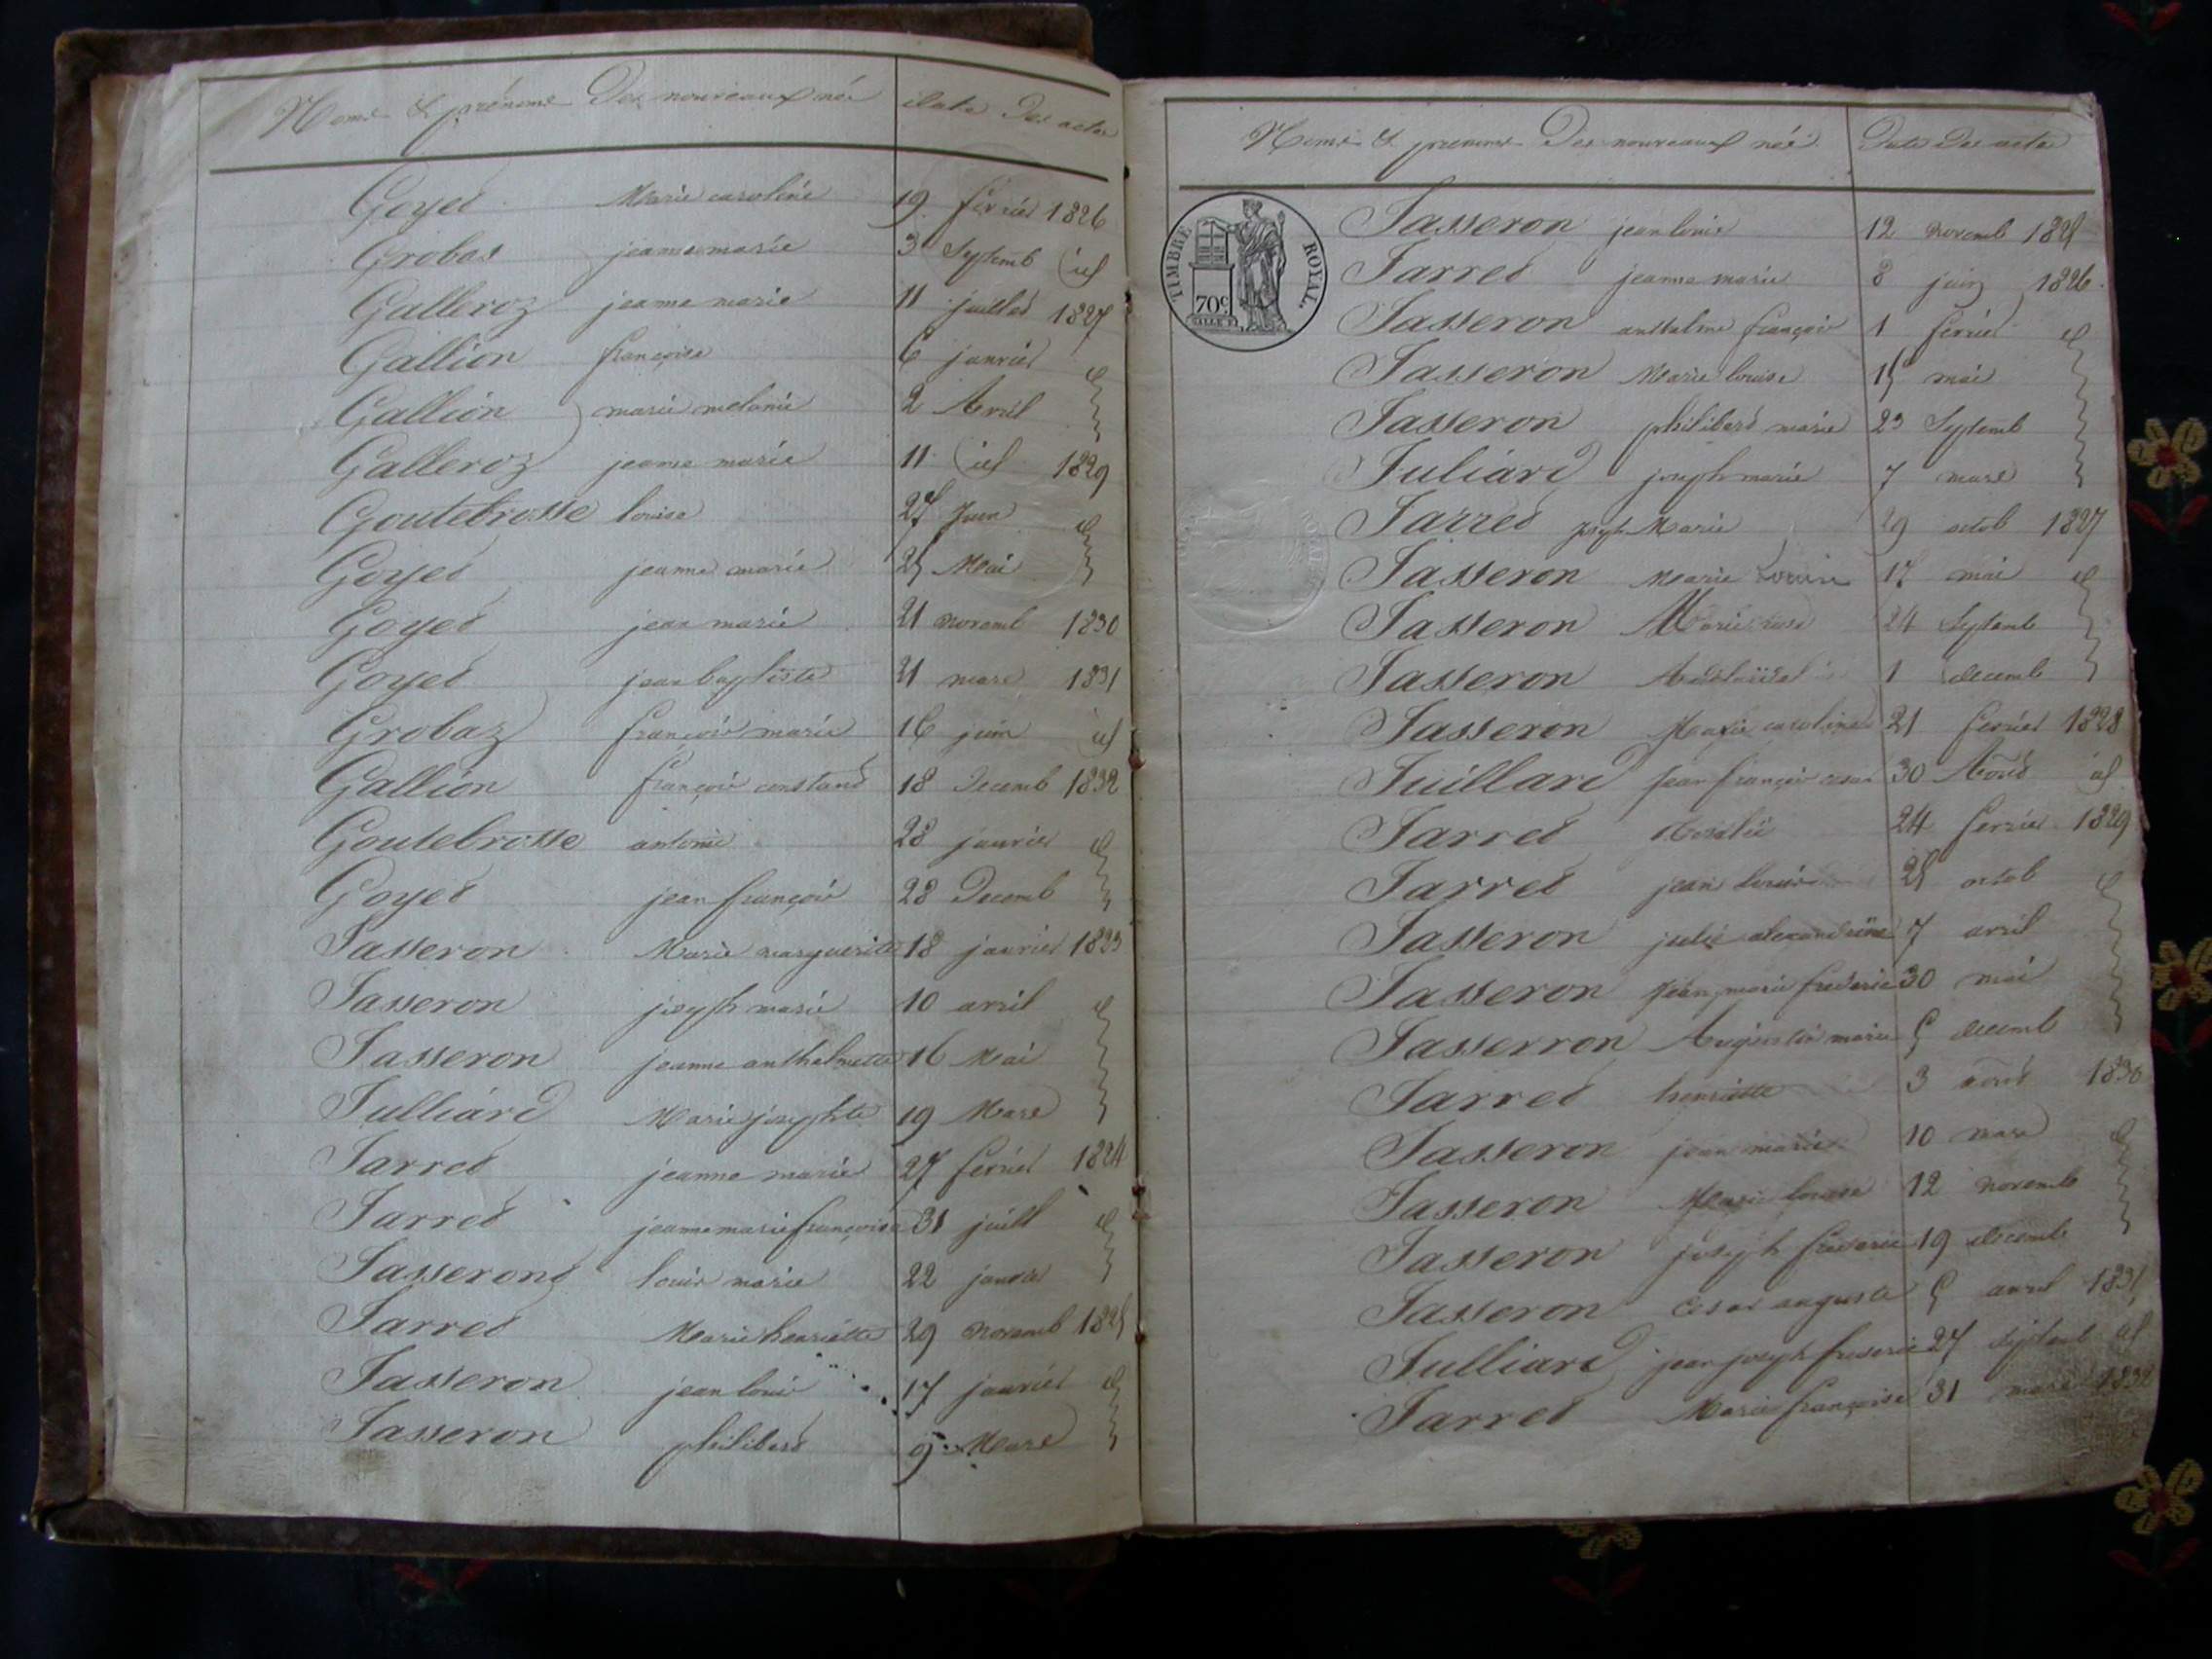 Noms & prénoms Des nouveaux néé date Des actes
Goyet Marie caroline 19 fevrier 1826
Grobas jeanne marie 3 Septemb id
Galleroz jeanne marie 11 juillet 1827
Gallion françoise 6 janvier
Gallion marie melanie 2 Avril
Galleroz jeanne marie 11 id 1829
Goutebrosse louise 27 Juin
Goyet jeanne marie 25 Mai
Goyet jean marie 21 novemb 1830
Goyet jean baptiste 21 mars 1831
Grobaz françois marie 16 juin id
Gallion françois constand 18 Decemb 1832
Goutebrosse antonie 28 janvier
Goyet jean françois 28 Decemb
Jasseron Marie marguerite 18 janvier 1823
Jasseron joseph marie 10 avril
Jasseron jeanne anthelmette 16 Mai
Julliard Marie josephte 19 Mars
Jarret jeanne marie 27 fevrier 1824
Jarret jeanne marie françoise 31 juill
Jasserond louis marie 22 janvier
Jarret Marie henriette 29 novemb 1825
Jasseron jean louis 17 janvier
Jasseron philibert 9 Mars
Noms & prenoms Des nouveaux néé Date Des actes
TIMBRE ROYAL.
70c
Jasseron jean louis 12 novemb 1825
Jarret jeanne marie 8 juin 1826
Jasseron anthelme françois 1 fevrier
Jasseron Marie louise 15 mai
Jasseron philibert marie 23 Septemb
Juliard joseph marie 7 mars
Jarret joseph Marie 29 octob 1827
Jasseron Marie Louise 17 mai
Jasseron Marie rose 24 Septemb
Jasseron Adelaïde 1 decemb
Jasseron Marie caroline 21 fevrier 1828
Juillard jean françois cesar 30 Aout id
Jarret Rosalie 24 fevrier 1829
Jarret jean louis 25 octob
Jasseron julie alexandrine 7 avril
Jasseron jean marie frederic 30 mai
Jasserron Augustin marie 5 decemb
Jarret henriette 3 aout 1830
Jasseron jean marie 10 mars
Jasseron Marie louise 12 novemb
Jasseron joseph frederic 19 decemb
Jasseron Cesar auguste 5 avril 1831
Julliard jean joseph frederic 27 septemb id
Jarret Marie françoise 31 mars 1832